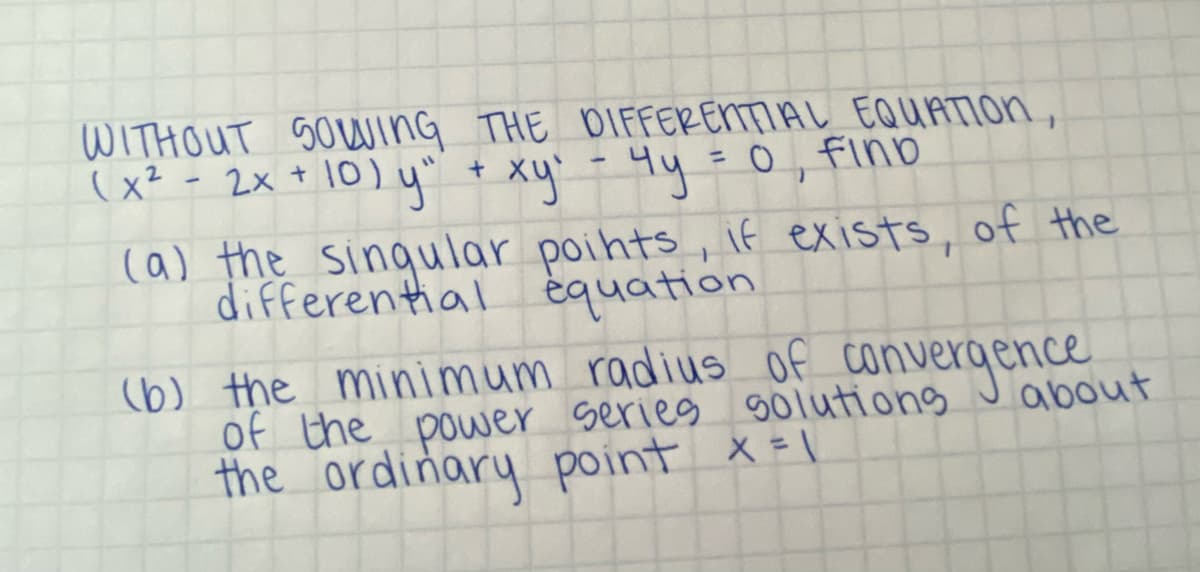 WITHOUT SOLVING THE DIFFERENTIAL EQUATION,
(x² - 2x + 10) y" + xy' - 4y = 0, FIND
(a) the singular points, if exists, of the
differential equation
(b) the minimum radius of convergence
of the power series solutions about
the ordinary point x = 1